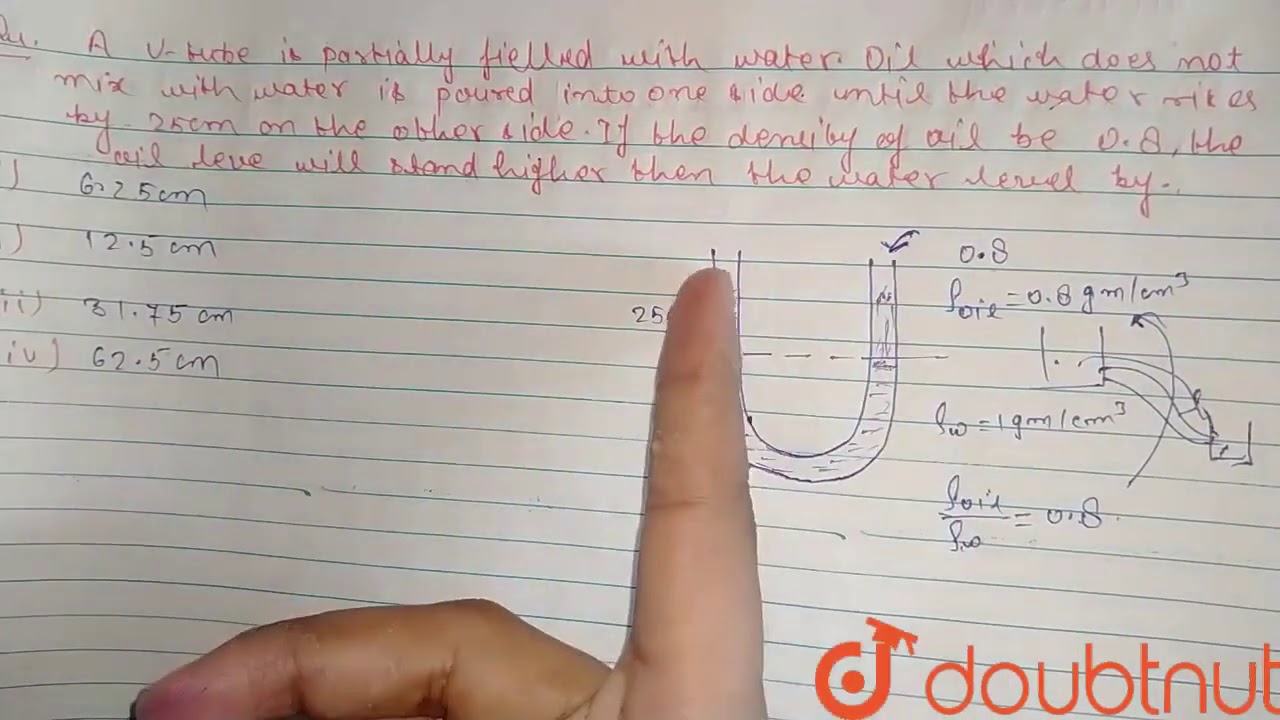 Qu. A U-tube is partially fielled with water. Oil which does not
mix with water is poured into one side until the water rises
by 25cm on the other side. If the density of oil be 0.8, the
oil leve will stand higher then the water level by-.
i) 6.25cm
ii) 12.5 cm
iii) 31.75 cm
iv) 62.5 cm
25
0.8
ρoil = 0.8 gm/cm³
ρw = 1 gm/cm³
ρoil/ρw = 0.8
doubtnut